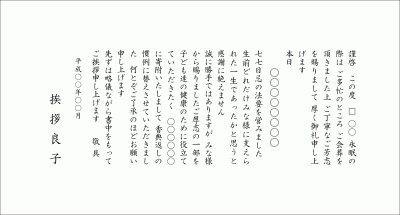 謹啓 この度 □ ○○ 永眠の
際は ご多忙のところ ご会葬を
頂きました上 ご丁寧なご芳志
を賜りまして 厚く御礼申し上
げます
本日
○○○○○○○
七七日忌の法要を営みました
生前どれだけみな様に支えら
れた一生であったかと思うと
感謝に絶えません
誠に勝手ではありますが みな様
から賜りましたご厚志の一部を
子ども達の健康のために役立て
ていただきたく ○○○○○
に寄附いたしまして 香典返しの
慣例に替えさせていただきまし
た 何とぞご了承のほどお願い
申し上げます
先ずは略儀ながら書中をもって
ご挨拶申し上げます 敬具
平成○○年○○月
挨拶良子